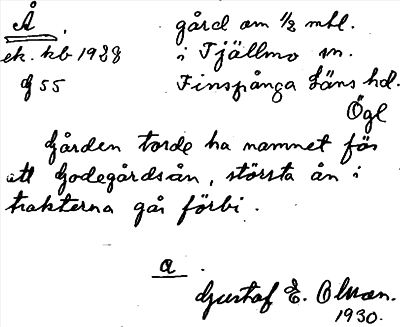 Å. gård om 1/2 mtl.
ek. kb 1928 i Tjällmo sn.
g 55 Finspånga Läns hd.
Ögl
Gården torde ha namnet för
att Godegårdsån, största ån i
trakterna går förbi.
a.
Gustaf E. Olsson.
1930.